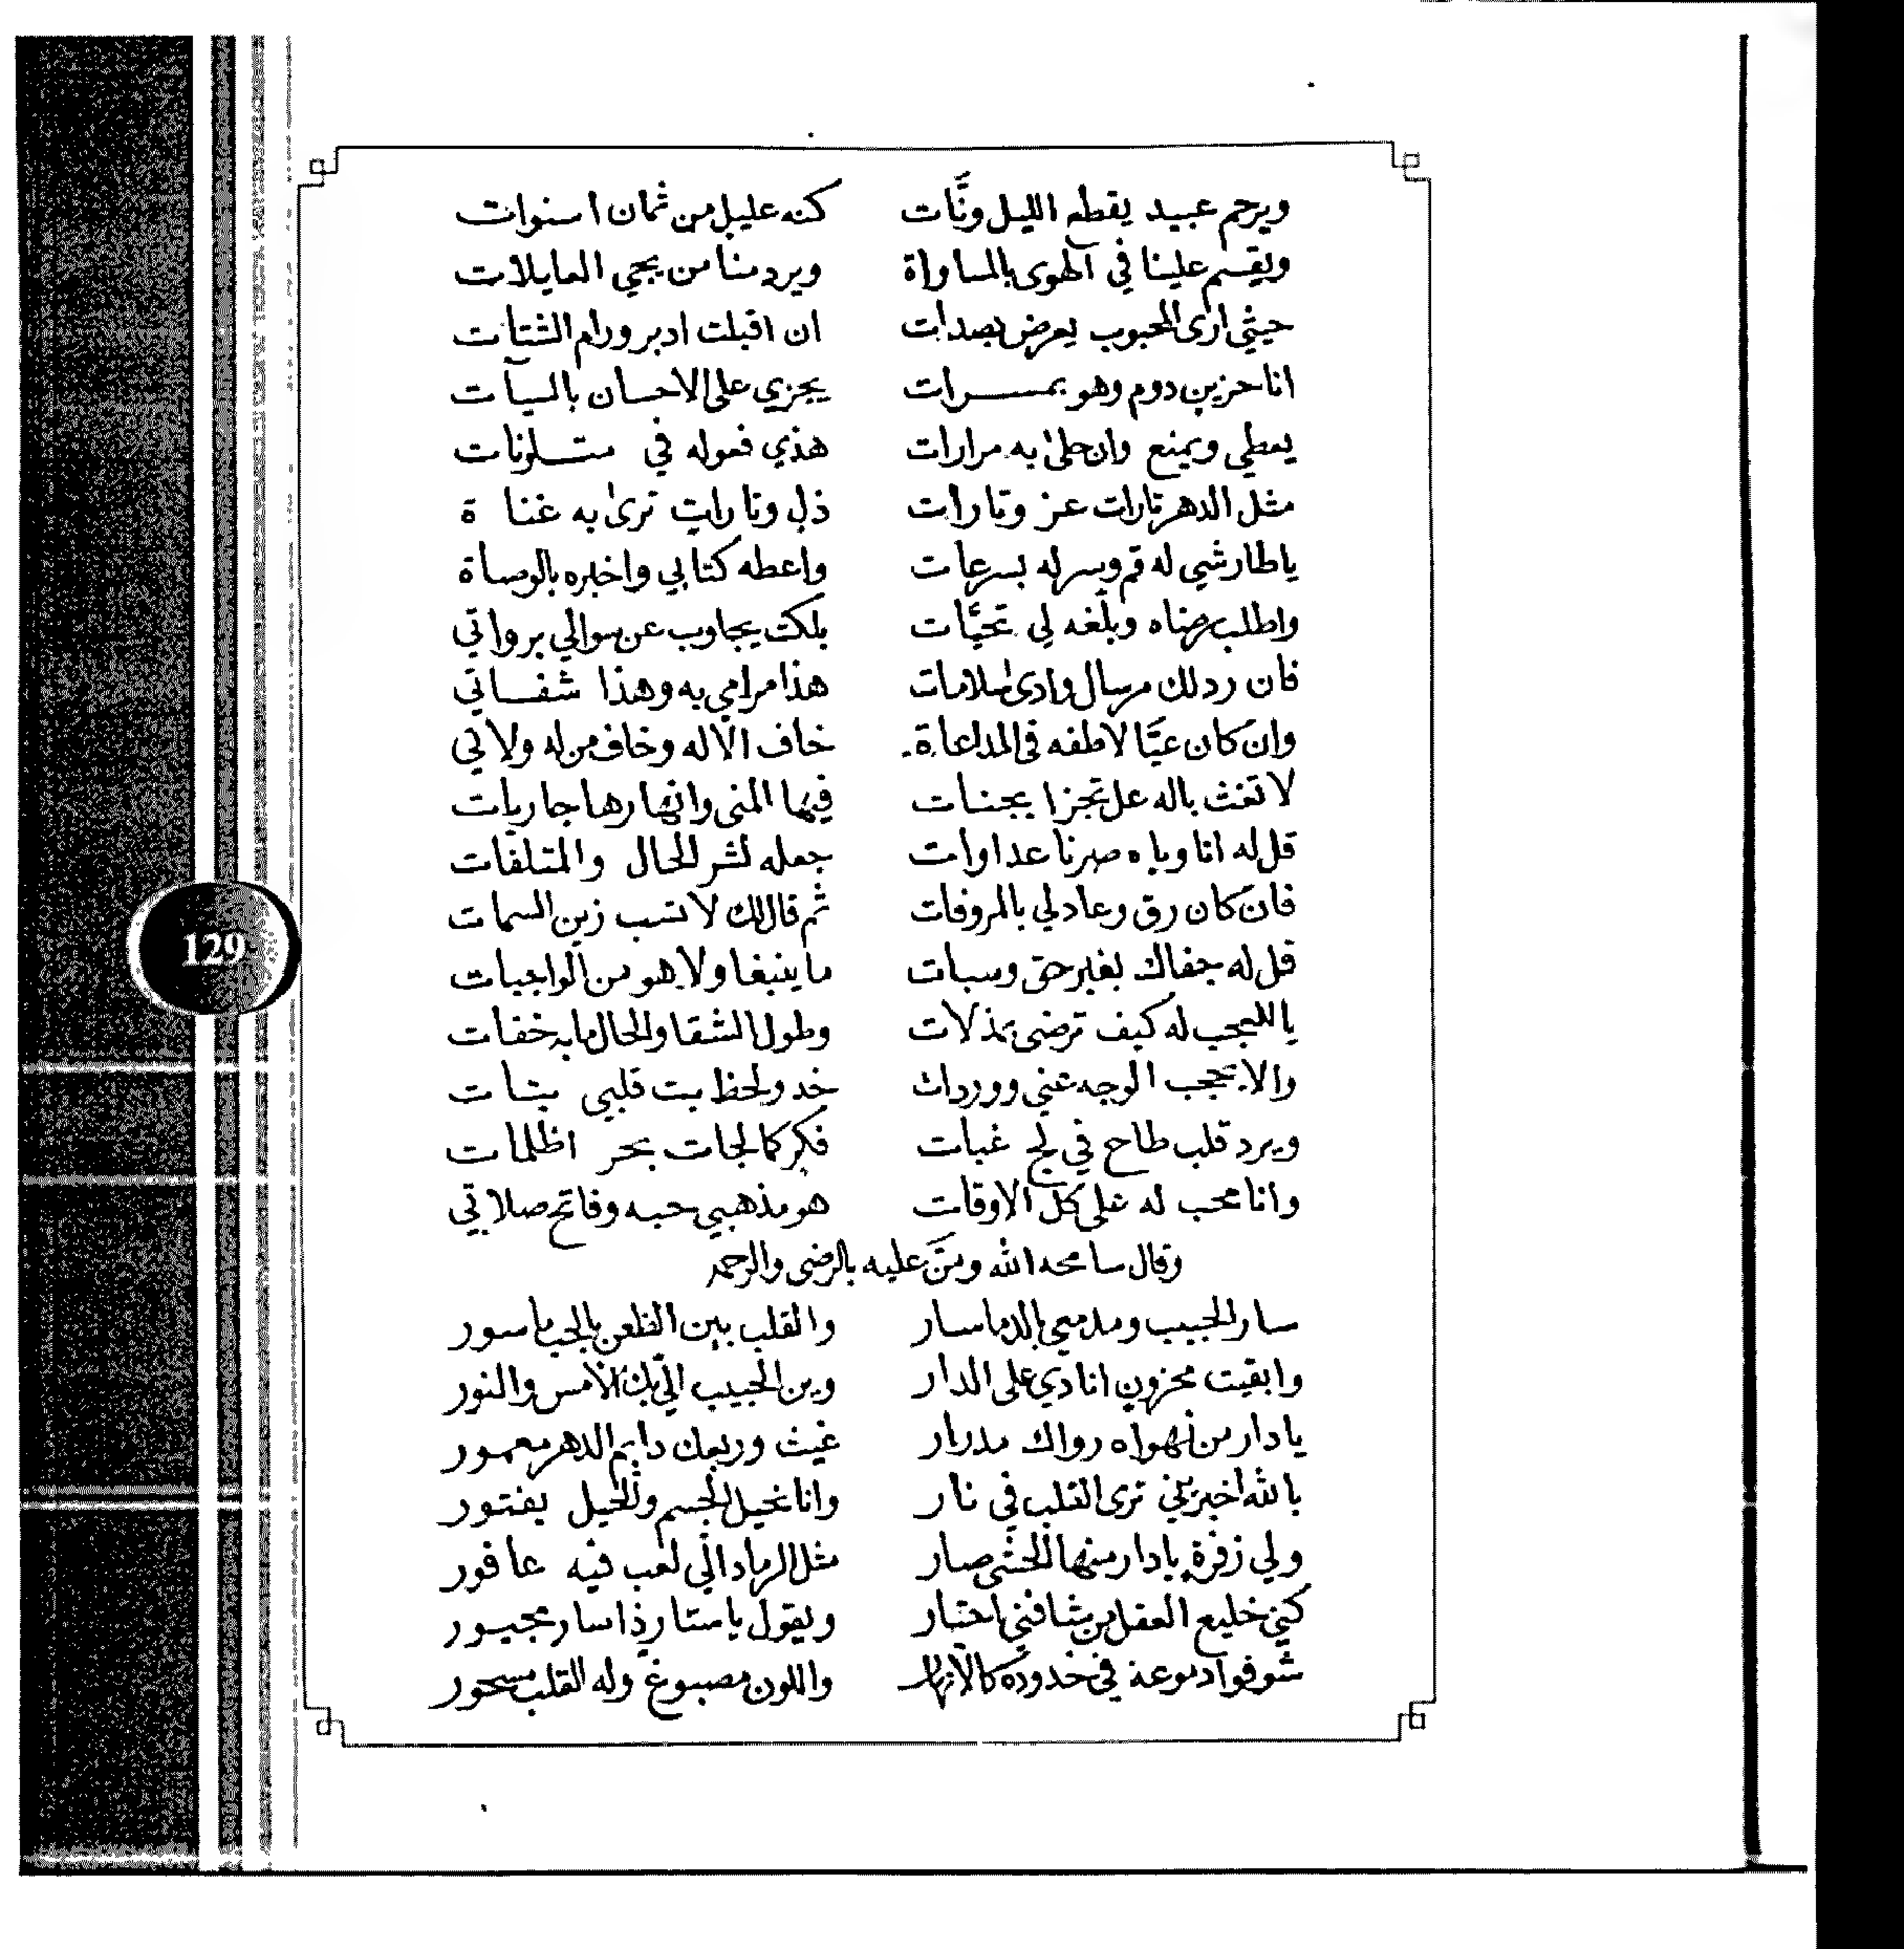 ويرحم عبيد يقطع الليل ونَّات كنه عليل من ثمان اسنوات
ويقسم علينا في الهوى بالمساواة ويرد منا من يجي العايلات
حيثي ارى المحبوب يعرض بصدات ان اقبلت ادبر ورام الشتات
انا حزين دوم وهو بمسرات يجزي على الاحسان بالسيآت
يعطي ويمنع وان حلى به مرارات هذي فعوله في متلونات
مثل الدهر تارات عز وتارات ذل وتارات ترى به غناة
ياطارشي له قم وسر له بسرعات واعطه كتابي واخبره بالوصاة
واطلب رضاه وبلّغه لي تحيَّات بلكت يجاوب عن سوالي برواتي
فان رد لك مرسال وادى سلامات هذا مرامي به وهذا شفاتي
وان كان عيَّا لاطفه في المداعاة خاف الاله وخاف من له ولاتي
لا تغث باله عل تجزا بجنات فيها المنى وانهارها جاريات
قل له انا وياه صرنا عداوات جعله لشر الحال والمتلفات
فان كان رق وعاد لي بالمروفات ثم قال لك لا تسب زين السمات
قل له جفاك بغير حق وسبات ما ينبغا ولا هو من الواجبات
يا للعجب له كيف ترضى بمذلات وطول الشقا والحال مابه خفات
والا بحجب الوجه عني ووردات خد ولحظ بت قلبي بتات
ويرد قلب طاح في لج غبات فكر كالجات بحر اظلمات
وانا محب له على كل الاوقات هو مذهبي حبه وفاتح صلاتي
وقال سامحه الله ومنَّ عليه بالرضى والرحمه
سار الحبيب ومدمعي بالدما سار والقلب بين الظعن بالحب ماسور
وابقيت محزون انادي على الدار وين الحبيب الي بك الامس والنور
يا دار من نهواه رواك مدرار غيث وربعك دايم الدهر معمور
بالله اخبريني ترى القلب في نار وانا نحيل الجسم والحيل بفتور
ولي زفرة يادار منها الحشى صار مثل الرماد الي لعب فيه عافور
كني خليع العقل من شافني احتار ويقول يا ستار ذا سار مجبور
شوفوا دموعه في خدوده كالانهار واللون مصبوغ وله القلب مسحور
129